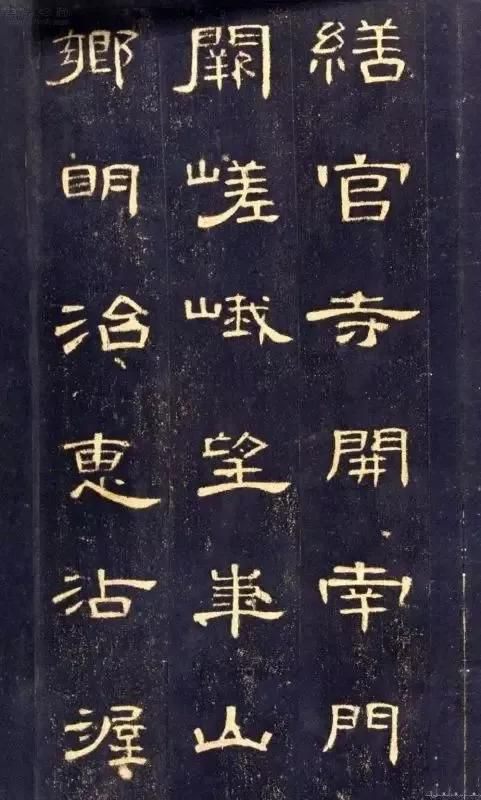 繕官寺開南門
闕嵯峨望華山
鄉明治惠沾渥